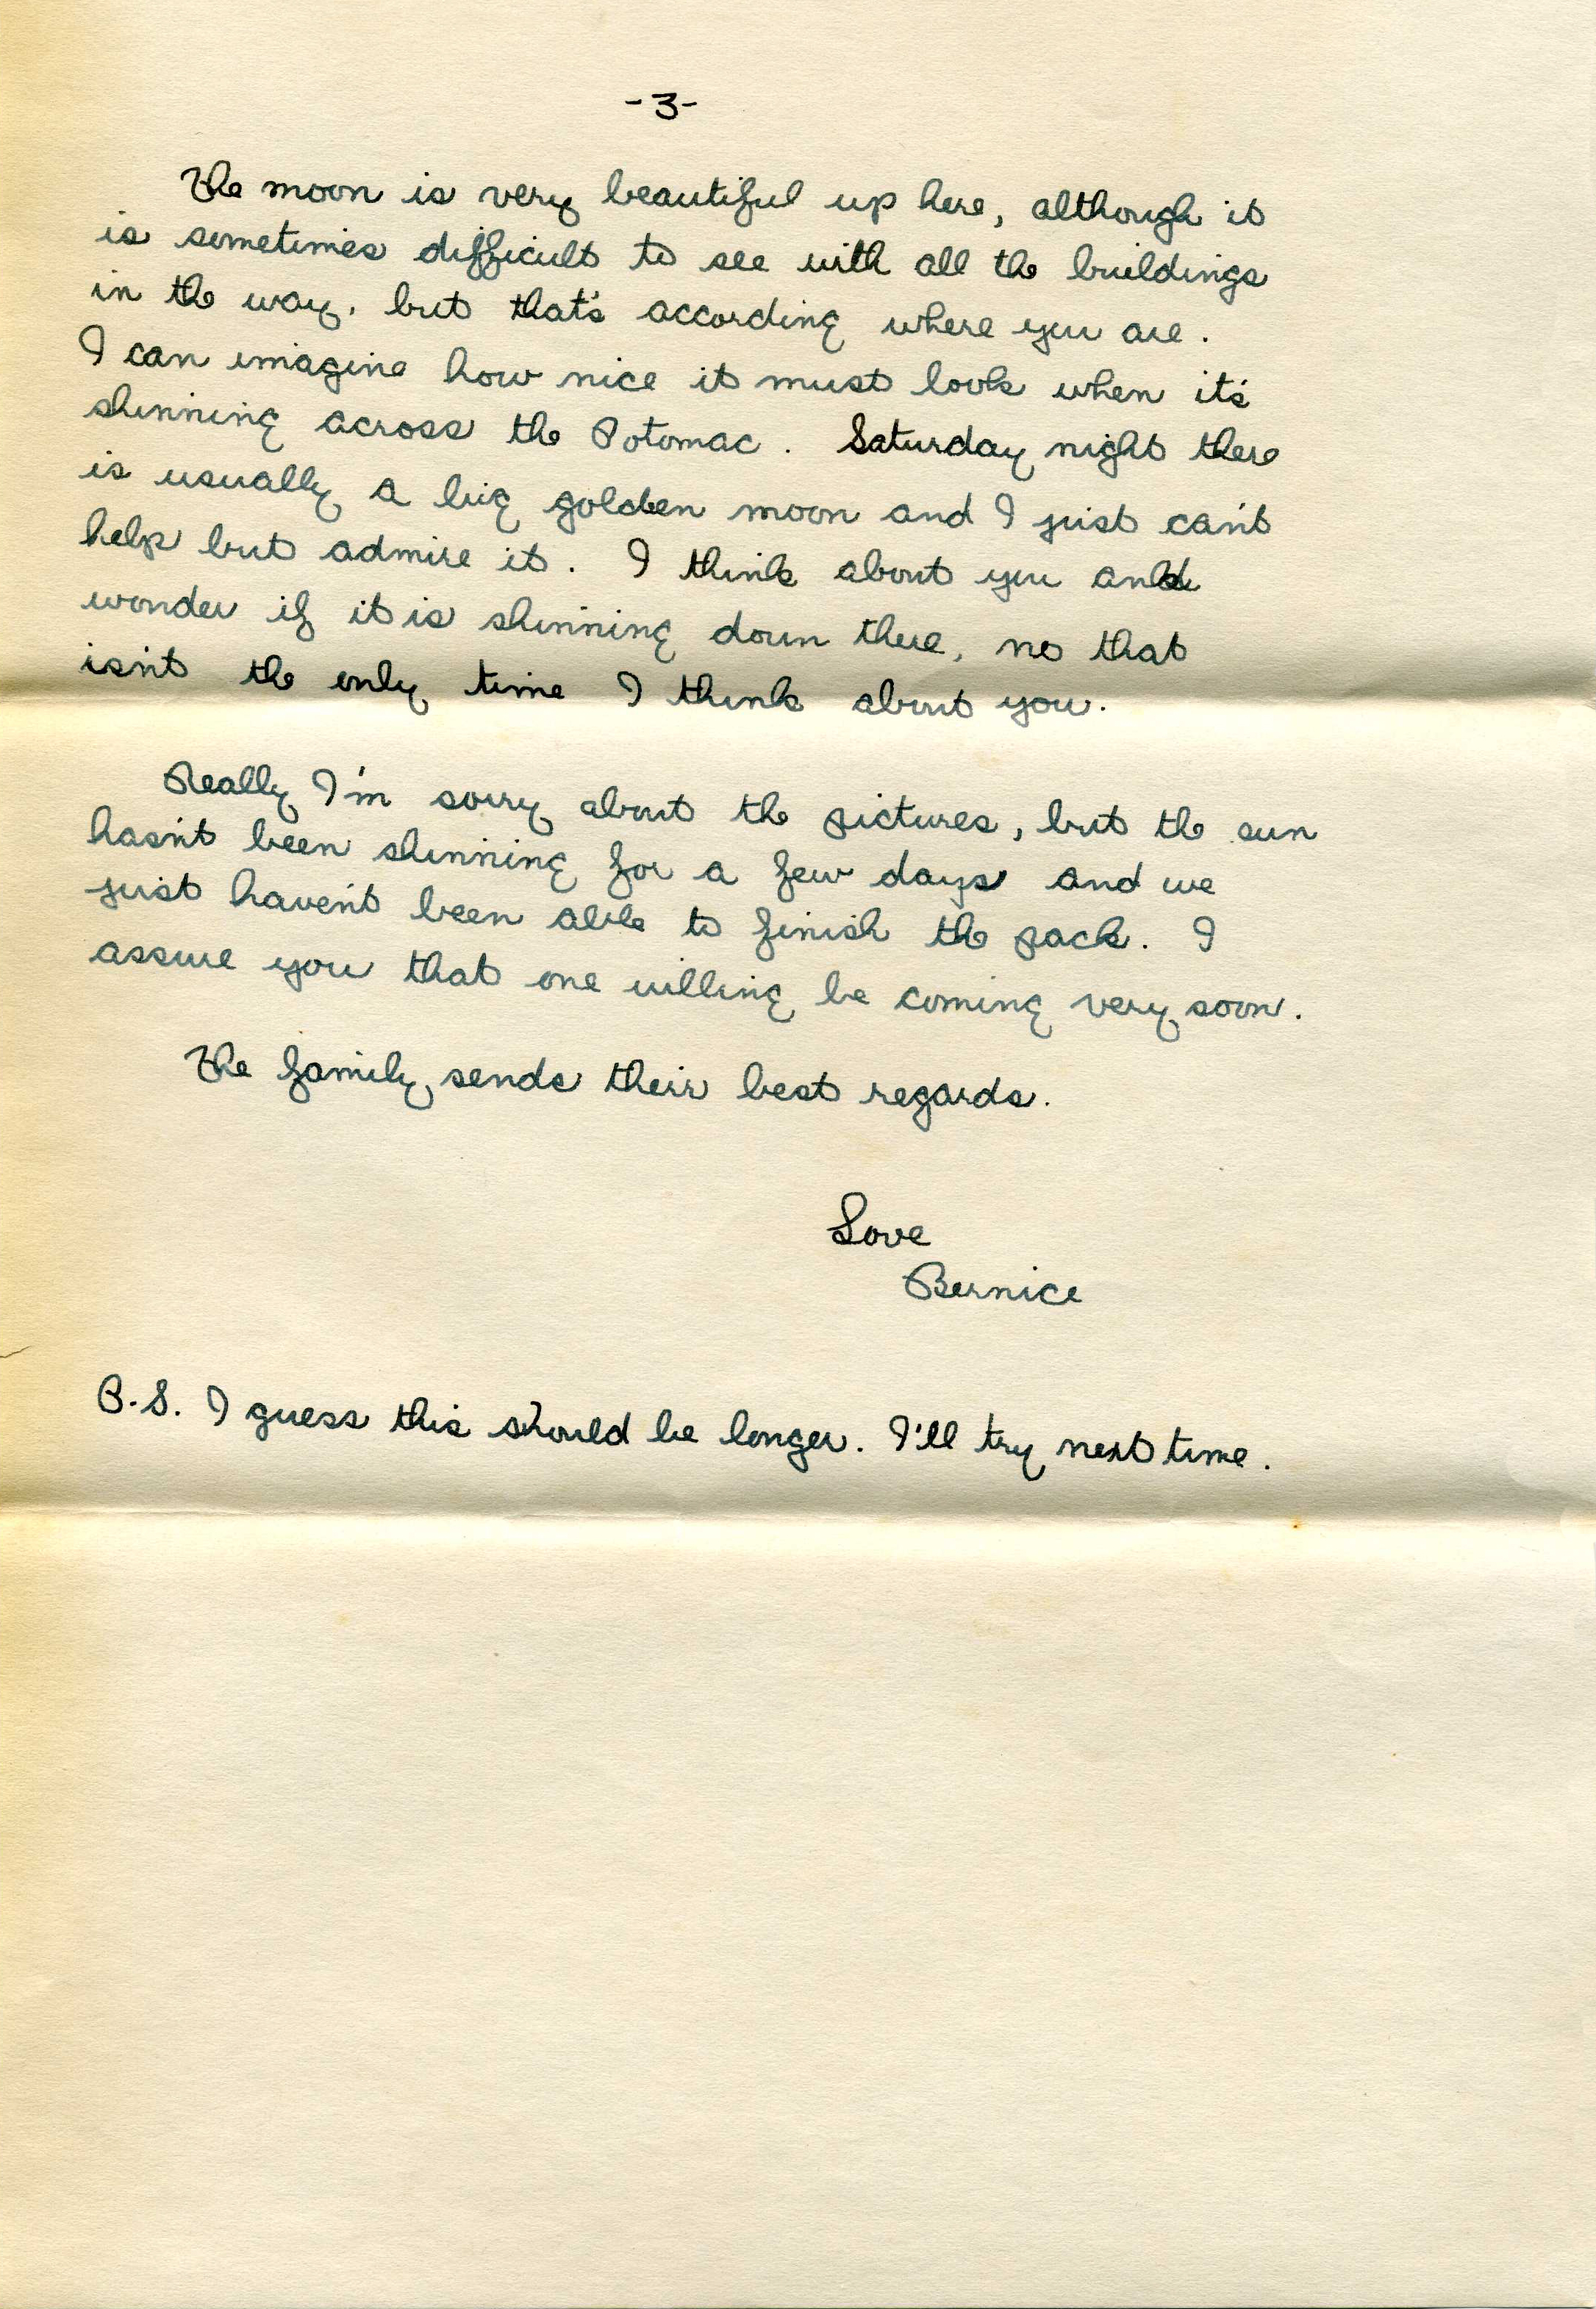 -3-
The moon is very beautiful up here, although it
is sometimes difficult to see with all the buildings
in the way, but that's according where you are.
I can imagine how nice it must look when it's
shinning across the Potomac. Saturday night there
is usually a big golden moon and I just can't
help but admire it. I think about you and
wonder if it is shinning down there, no that
isn't the only time I think about you.
Really I'm sorry about the pictures, but the sun
hasn't been shinning for a few days and we
just haven't been able to finish the pack. I
assure you that one willing be coming very soon.
The family sends their best regards.
Love
Bernice
P.S. I guess this should be longer. I'll try next time.